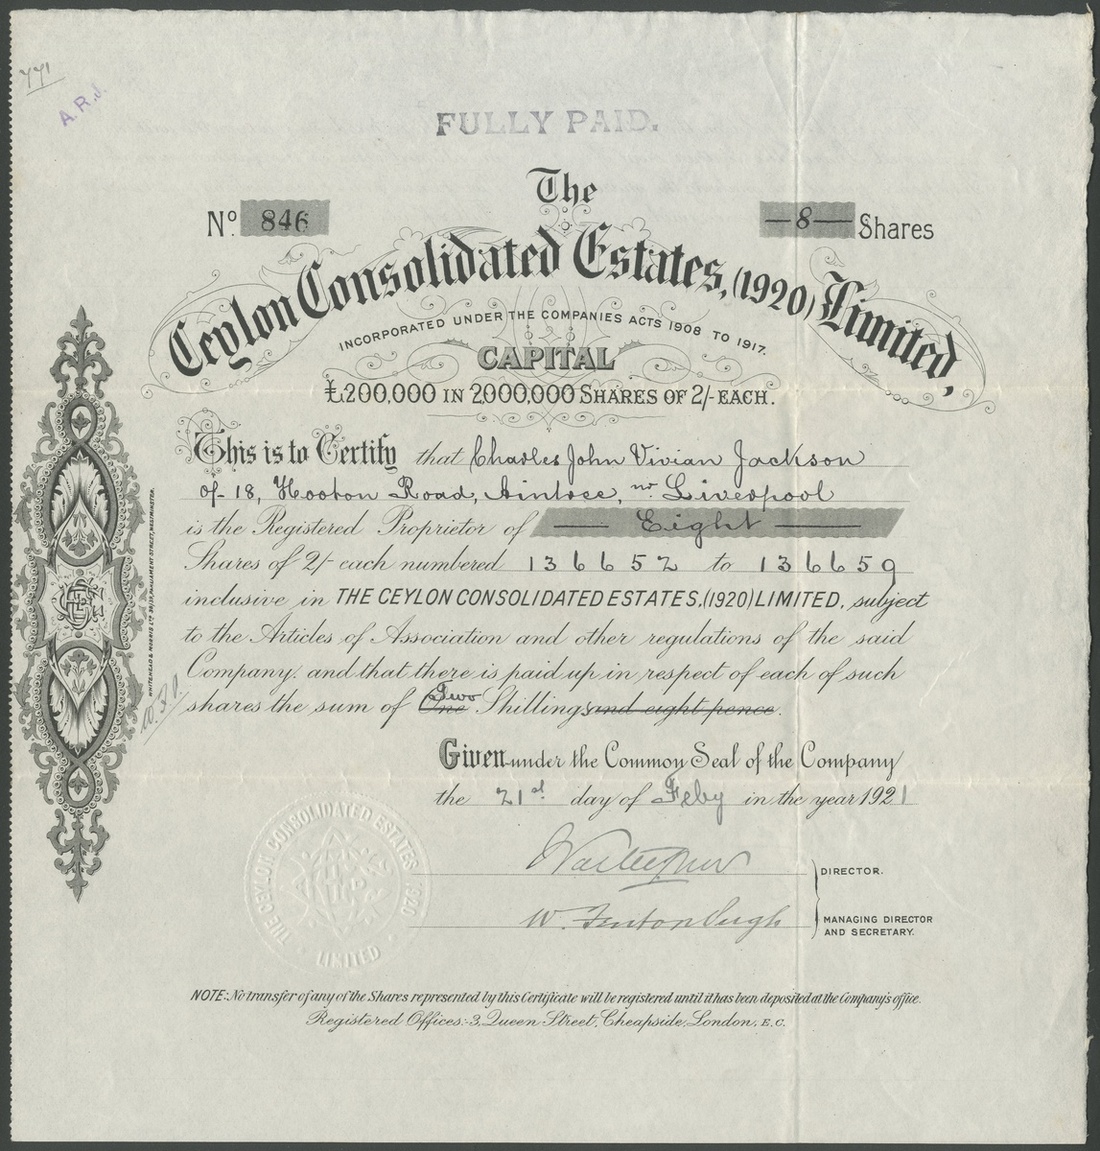 771
A.R.J.
FULLY PAID.
The
No. 846
—8— Shares
Ceylon Consolidated Estates, (1920) Limited,
INCORPORATED UNDER THE COMPANIES ACTS 1908 TO 1917.
CAPITAL
£200,000 IN 2000,000 SHARES OF 2/- EACH.
This is to Certify that Charles John Vivian Jackson
of 18, Hooton Road, Aintree, nr Liverpool
is the Registered Proprietor of — Eight —
Shares of 2/- each numbered 136652 to 136659
inclusive in THE CEYLON CONSOLIDATED ESTATES, (1920) LIMITED, subject
to the Articles of Association and other regulations of the said
Company. and that there is paid up in respect of each of such
Two
shares the sum of One Shillings and eight pence.
Given under the Common Seal of the Company
the 21st day of Feby in the year 1921
DIRECTOR.
W. Fenton Pugh
MANAGING DIRECTOR
AND SECRETARY.
THE CEYLON CONSOLIDATED ESTATES 1920
LIMITED
NOTE:- No transfer of any of the Shares represented by this Certificate will be registered until it has been deposited at the Company's office.
Registered Offices:- 3, Queen Street, Cheapside, London, E.C.
WHITEHEAD & MORRIS LTD 38/39, PARLIAMENT STREET, WESTMINSTER.